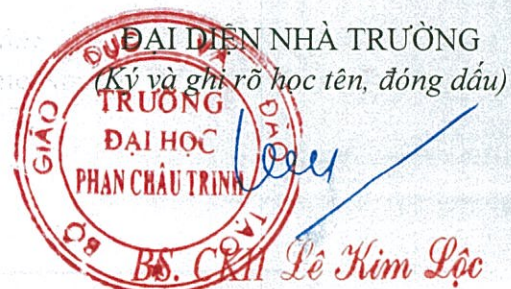 ĐẠI DIỆN NHÀ TRƯỜNG
(Ký và ghi rõ học tên, đóng dấu)
BỘ GIÁO DỤC VÀ ĐÀO TẠO
TRƯỜNG
ĐẠI HỌC
PHAN CHÂU TRINH
BS. CKII Lê Kim Lộc